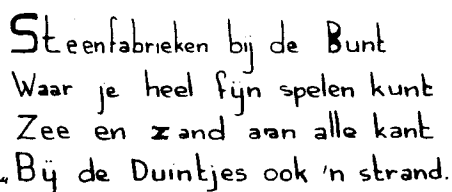 Steenfabrieken bij de Bunt
Waar je heel fijn spelen kunt
Zee en zand aan alle kant
„Bij de Duintjes ook 'n strand.